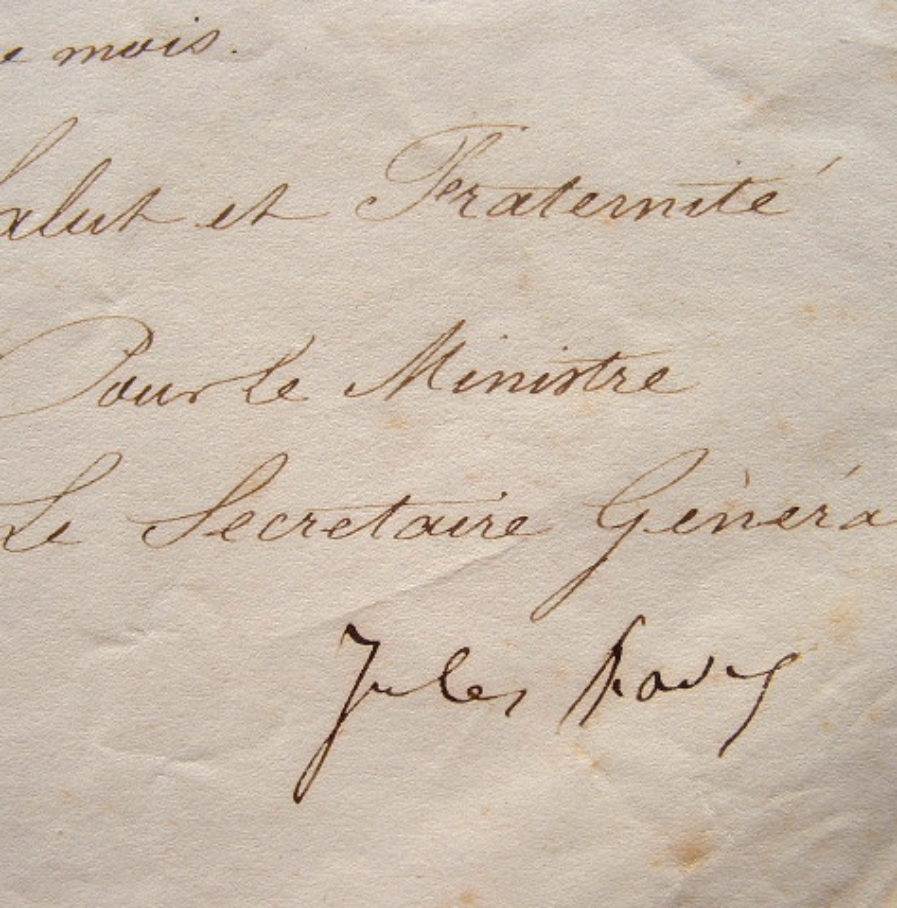 e mois.
Salut et Fraternité
Pour Le Ministre
Le Secretaire Généra
Jules Favre